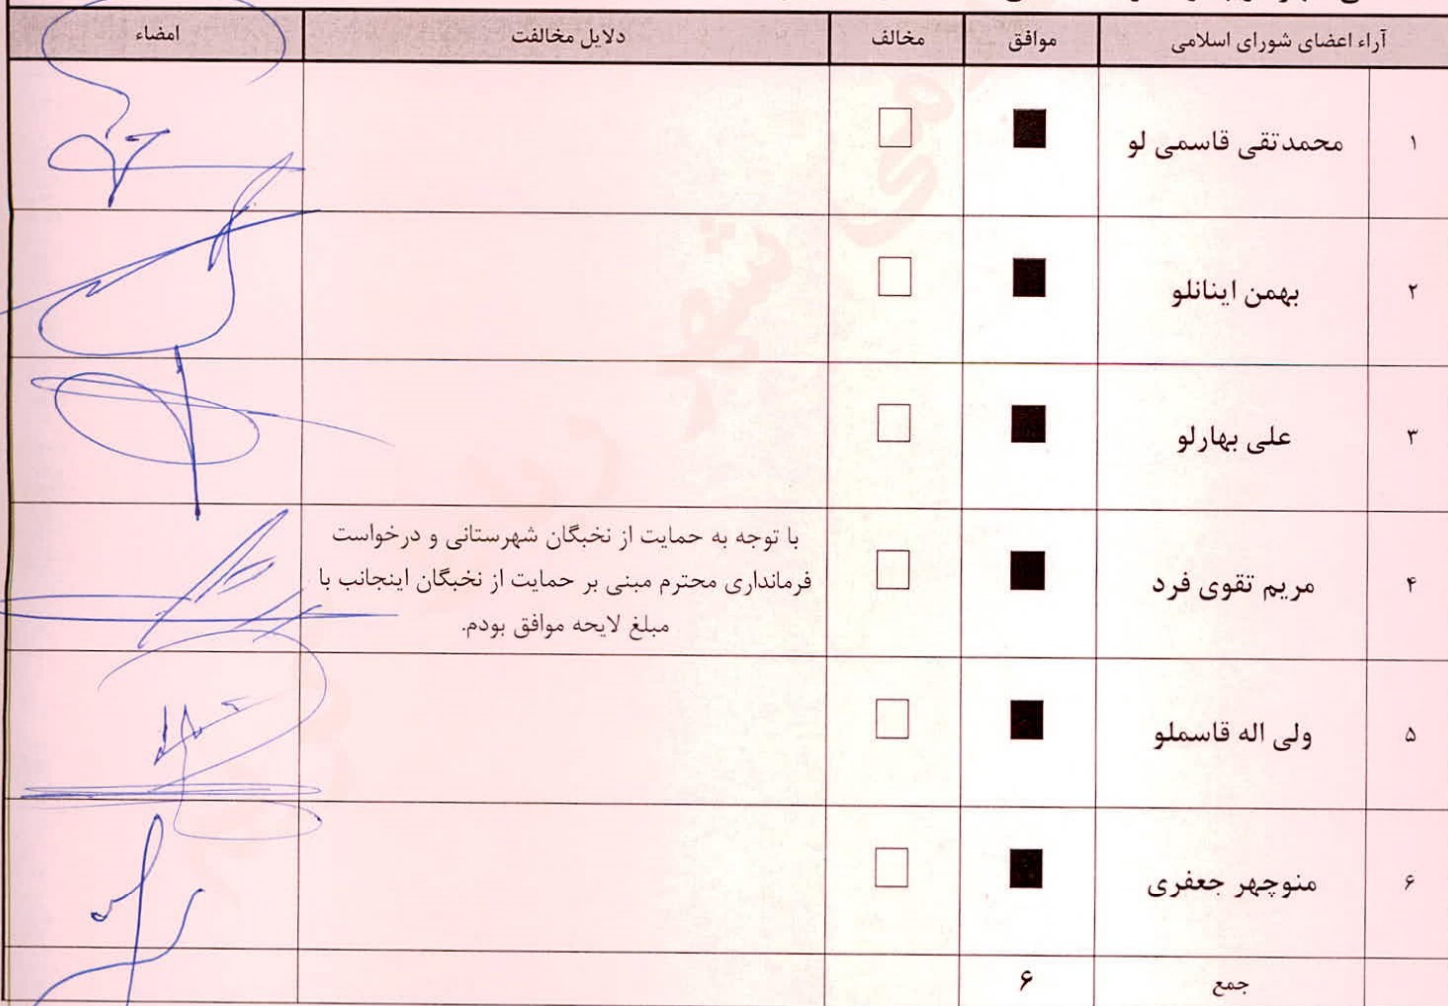 آراء اعضای شورای اسلامی موافق مخالف دلایل مخالفت امضاء
۱ محمدتقی قاسمی لو ■ □
۲ بهمن اینانلو ■ □
۳ علی بهارلو ■ □
۴ مریم تقوی فرد ■ □
با توجه به حمایت از نخبگان شهرستانی و درخواست
فرمانداری محترم مبنی بر حمایت از نخبگان اینجانب با
مبلغ لایحه موافق بودم.
۵ ولی اله قاسملو ■ □
۶ منوچهر جعفری ■ □
جمع ۶